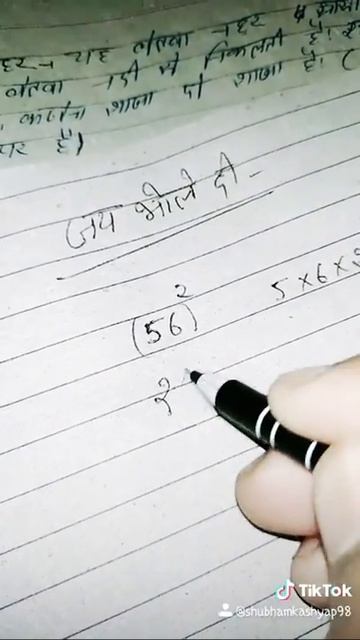 नहर → यह बेतवा नहर
बेतवा नदी से निकलती है।
शाखा दो शाखा है। (
पर है)
जय भोले दी -
(56)²
5 × 6 × 2
2
TikTok
@shubhamkashyap98